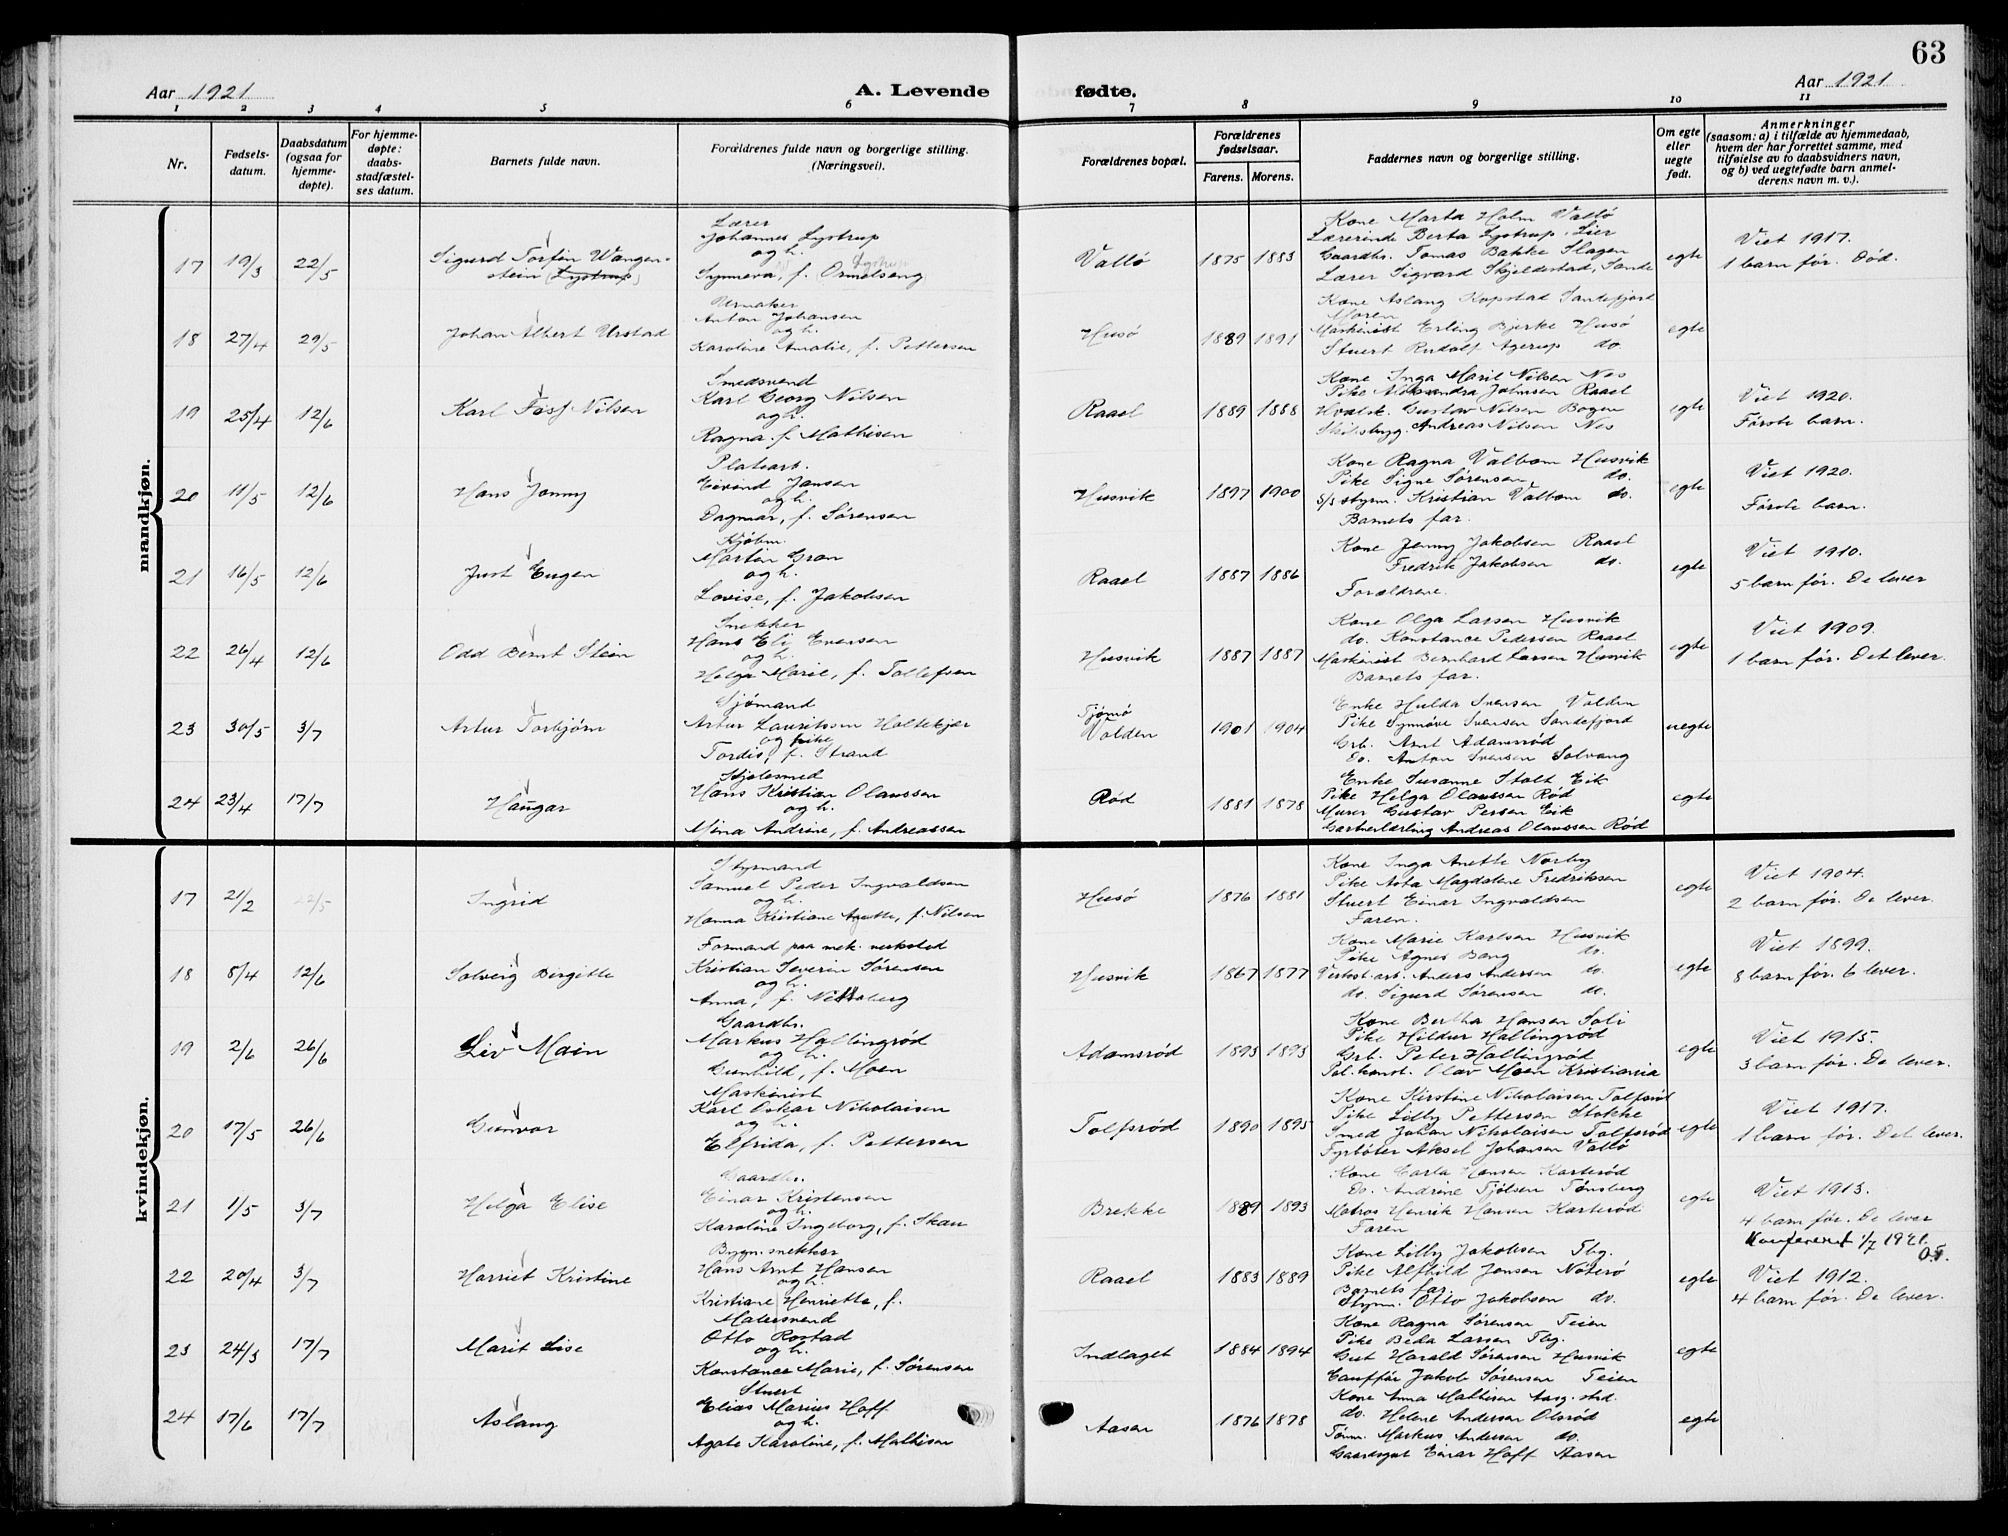 63
Aar 1921
A. Levende fødte.
Aar 1921
1 2 3 4 5 6 7 8 9 10 11
Nr.
Fødsels-
datum.
Daabsdatum
(ogsaa for
hjemme-
døpte).
For hjemme-
døpte:
daabs-
stadfæstel-
ses datum.
Barnets fulde navn.
Forældrenes fulde navn og borgerlige stilling.
(Næringsvei).
Forældrenes bopæl.
Forældrenes
fødselsaar.
Farens. Morens.
Faddernes navn og borgerlige stilling.
Om egte
eller
uegte
født.
Anmerkninger
(saasom: a) i tilfælde av hjemmedaab,
hvem der har forrettet samme, med
tilføielse av to daabsvidners navn,
og b) ved uegtefødte barn anmel-
derens navn m. v.).
mandkjøn.
17 19/3 22/5
Sigurd Torfin Wangen-
stein (Lystrup)
Lærer
Johannes Lystrup
og h.
Synneva, f. Ormelseng
Vallö 1875 1883
Kone Marta Holm Vallö
Lærerinde Berta Lystrup, Lier
Gaardbr. Tomas Bakke Slagen
Lærer Sigvard Skjeldestad, Sande
egte
Viet 1917.
1 barn før. Död.
18 27/4 29/5
Johan Albert Urstad
Urmaker
Anton Johansen
og h.
Karoline Amalie, f. Pettersen
Husö 1889 1891
Kone Aslaug Kopstad Sandefjord
Moren
Maskinist Erling Bjerke Husö
Stuert Rudolf Agerup do.
egte
19 25/4 12/6
Karl Nilsen
Smedsvend
Karl Georg Nilsen
og h.
Ragna, f. Mathisen
Raael 1889 1888
Kone Inga Maril Nilsen Nes
Pike Johnsen Raael
Hvalsk. Gustav Nilsen Bogen
Skibsbyg. Andreas Nilsen Nes
egte
Viet 1920.
Første barn.
20 11/5 12/6
Hans Jonny
Platearb.
Eivind Jansen
og h.
Dagmar, f. Sørensen
Husvik 1897 1900
Kone Ragna Valbom Husvik
Pike Signe Sørensen do.
S/s styrm. Kristian Valbom do.
Barnets far.
egte
Viet 1920.
Første barn.
21 16/5 12/6
Just Eugen
Kjøbm.
Martin Gran
og h.
Lovise, f. Jakobsen
Raael 1887 1886
Kone Jenny Jakobsen Raael
Fredrik Jakobsen do.
Forældrene.
egte
Viet 1910.
5 barn før. De lever
22 26/4 12/6
Odd Bernt Stein
Snekker
Hans Eli Evensen
og h.
Helga Marie, f. Tollefsen
Husvik 1887 1887
Kone Olga Larsen Husvik
do. Konstance Pedersen Raael
Maskinist Bernhard Larsen Husvik
Barnets far.
egte
Viet 1909.
1 barn før. Det lever.
23 30/5 3/7
Artur Torbjørn
Sjømand
Artur Lauritssen Holtekjær
og pike
Tordis, f. Strand
Tjømö
Volden 1901 1904
Enke Hulda Svensen Volden
Pike Synnöve Svensen Sandefjord
Grb. Arnt Adamsrød
Do. Anton Svensen Solvang
uegte
24 23/4 17/7
Haugar
Hjulesmed
Hans Kristian Olaussen
og h.
Mina Andrine, f. Andreassen
Rød 1881 1878
Enke Susanne Stolt Eik
Pike Helga Olaussen Rød
Murer Gustav Persen Eik
Gartnerlærling Andreas Olaussen Rød
egte
kvindekjøn.
17 21/2 22/5
Ingrid
Styrmand
Samuel Peder Ingvaldsen
og h.
Hanna Kristiane Agette, f. Nilsen
Husö 1876 1881
Kone Inga Anette Norby
Pike Nota Magdalene Fredriksen
Stuert Einar Ingvaldsen
Faren.
egte
Viet 1904.
2 barn før. De lever.
18 8/4 12/6
Solveig Birgitte
Formand paa mek. verksted
Kristian Severin Sørensen
og h.
Anna, f.
Husvik 1867 1877
Kone Marie Karlsen Husvik
Pike Agnes Bang do.
Verkst. arb. Anders Andersen do.
do. Sigurd Sørensen do.
egte
Viet 1899.
8 barn før. 6 lever.
19 2/6 26/6
Liv Moin
Gaardbr.
Markus Hallingrød
og h.
Gunhild, f. Moen
Adamsrød 1893 1893
Kone Bertha Hansen Soli
Pike Hildur Hallingrød
Grb. Peter Hallingrød
Pol. konst. Olav Moen Kristiania
egte
Viet 1915.
3 barn før. De lever.
20 17/5 26/6
Gunvor
Maskinist
Karl Oskar Nikolaisen
og h.
Elfrida, f. Pettersen
Tolfsrød 1890 1895
Kone Kirstine Nikolaisen Tolfsrød
Pike Lilly Pettersen Stokke
Smed Johan Nikolaisen Tolfsrød
Fyrbøter Aksel Johansen Vallö
egte
Viet 1917.
1 barn før. Det lever.
21 1/5 3/7
Helga Elise
Gaardbr.
Einar Kristensen
og h.
Karoline Ingeborg, f. Skau
Brekke 1889 1893
Kone Carla Hansen Karterød
Do. Andrine Tjølsen Tønsberg
Matros Henrik Hansen Karterød
Faren
egte
Viet 1913.
4 barn før. De lever
Konfereret 1/7 1921.
O.F.
22 20/4 3/7
Harriet Kristine
Bygn. snekker
Hans Arnt Hansen
og h.
Kristiane Henriette, f.
Raael 1883 1889
Kone Lilly Jakobsen Tbg.
Pike Alfhild Jensen Nøterö
Barnets far.
Styrm. Otto Jakobsen do.
egte
Viet 1912.
4 barn før. De lever.
23 24/3 17/7
Marit Lise
Malersvend
Otto Rostad
og h.
Konstance Marie, f. Sørensen
Indlaget 1884 1894
Kone Ragna Sørensen Teien
Pike Beda Larsen Tbg.
Gust Harald Sørensen Husvik
Cauffør Jakob Sørensen Teien
egte
24 17/6 17/7
Aslaug
Stuert
Elias Marius Hoff
og h.
Agate Karoline, f. Mathisen
Aasen 1876 1878
Kone Anna Mathisen Aasg. strd.
do. Helene Andersen Olsrød
Tømm. Markus Andersen do.
Gaardsgut Einar Hoff Aasen
egte